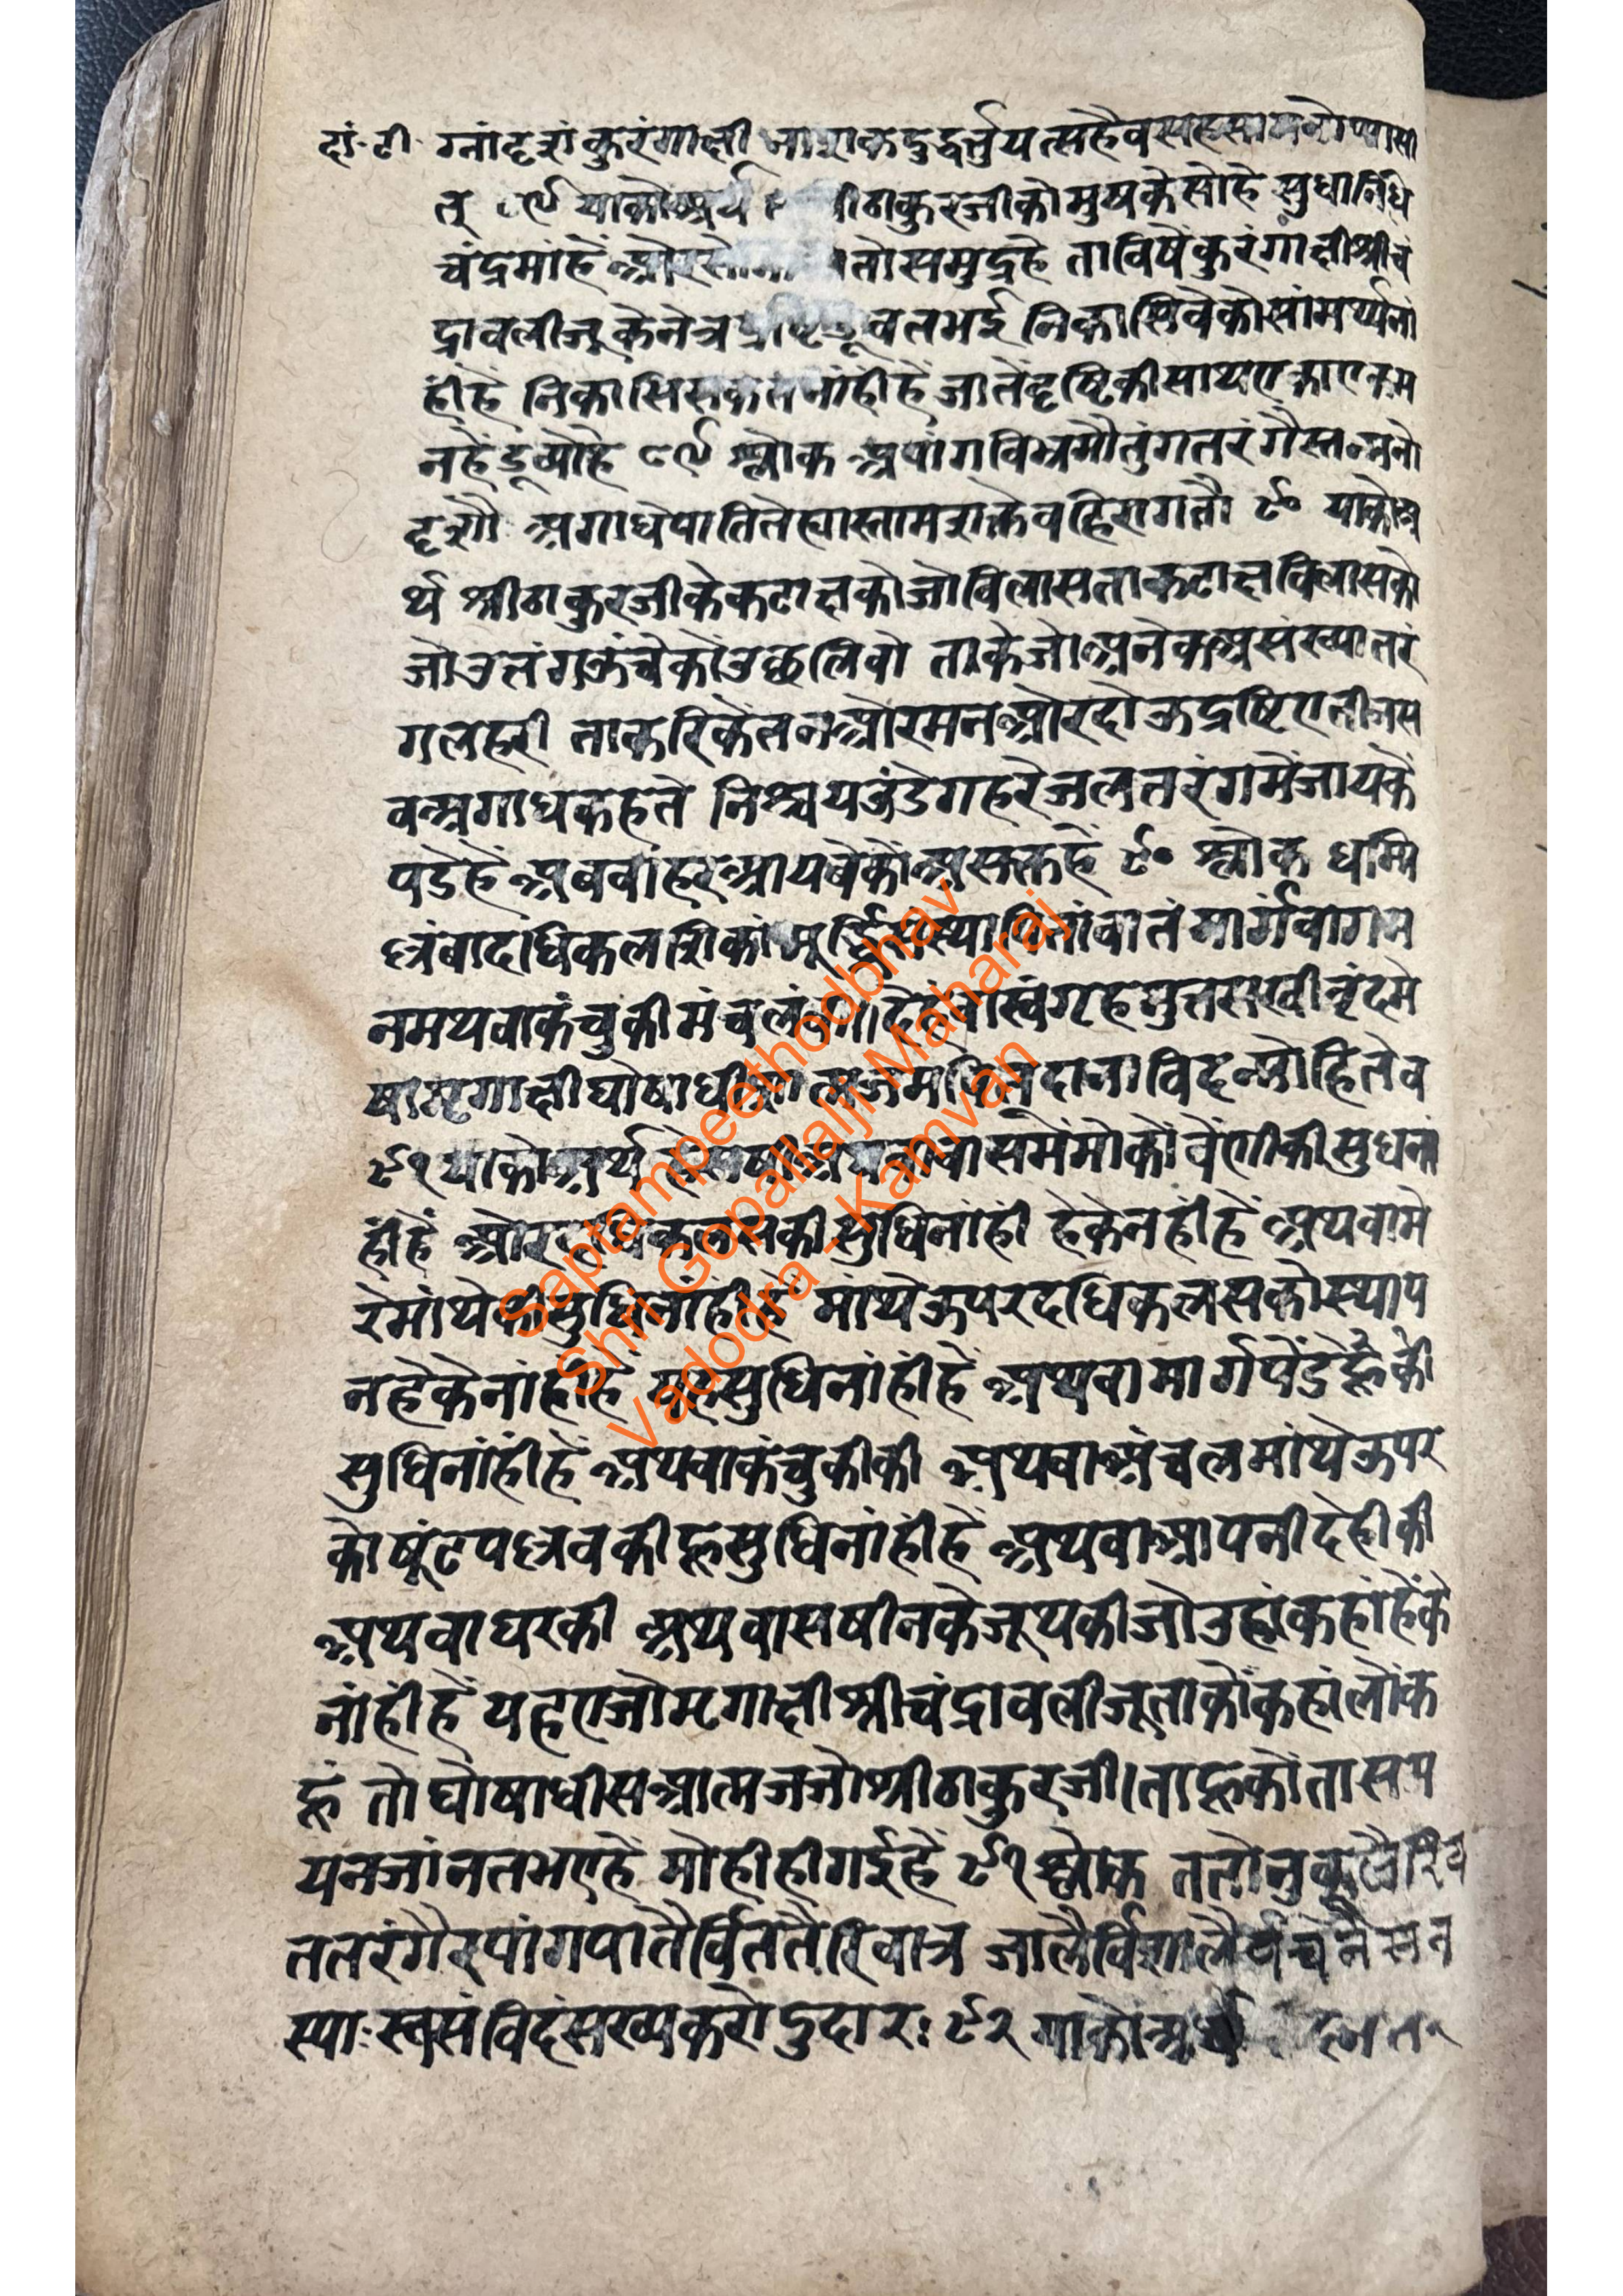 दां.टी ग्नां दृशं कुरंगाक्षी नाशकदुद्धर्तुं यत्सहैव सहसा मनोप्यासी
त् ८९ याकोअर्थ श्रीठाकुरजीको मुषकेसोहै सुधानिधि
चंद्रमाहै औरसो तोसमुद्रहै ताविषेंकुरंगाक्षीश्रीचं
द्रावलीजूकेनेत्रद्रष्टिडूबतभई निकासिवेकोसांमर्थ्यनां
हींहै निकासिसकतनांहीहै जातेंदृष्टिकीसाथएकाएकम
नहेंडूब्योहै ८९ श्लोक अपांगविभ्रमौतुंगतरंगैस्तन्मनो
दृशौ अगाधेपातितेह्यास्तामशक्तेवहिरागतौ ९० याकोअ
र्थ श्रीठाकुरजीकेकटाक्षकोजोविलासताकटाक्षविलासको
जोउतंगऊंचेकोंउछलिवो ताकेजोअनेकअसंख्यातरं
गलहरी ताकरिकेंतनओरमनओरदोऊद्रष्टिएतीजस
वअगाधकहते निश्चयउंडेगहरेजलतरंगमेंजायकें
पडेहें अबबांहरआयबेकोंअसक्तहें ९० श्लोक धम्मि
ल्लंवादधिकलशिकांमूर्द्ध्नि वातंमार्गंवागम
नमथवाकंचुकीमंचलं देहंवास्वंगृहमुतसखीवृंदमे
षामृगाक्षीघोषाधीशात्मजम विदन्मोहितेव
९१ याकोअर्थ समेंमोकोंवेंणीकीसुधनां
हींहें ओरदधिकलसकीसुधिनांहीं हेकेनहींहें अथवामे
रेमांथेकीसुधिनांहीहें मांथेऊपरदधिकलसकोस्थाप
नहेकेनांहींहें यहसुधिनांहींहें अथवामार्गपेंडेहूकी
सुधिनांहींहें अथवाकंचुकीकी अथवाअंचलमांथेऊपर
कोघूंटपल्लवकीहूसुधिनांहींहें अथवाआपनीदेहीकी
अथवाघरकी अथवासषीनकेजूथकीजोउहांकहांहेंके
नांहींहें यहएजोमृगाक्षीश्रीचंद्रावलीजूताकोंकहांलोंक
हूं तोघोषाधीसआत्मजजोश्रीठाकुरजी।ताहूकोतासम
यनजांनतभएहें मोहीहीगईहें ९१ श्लोक ततोनुकूलैरिव
ततरंगैरपांगपातैर्विततैरिवात्र जालैर्विशालैर्वचनैस्सत
स्याःस्तसंविदंसख्यकरोदुदारः ९२ याकोअर्थ